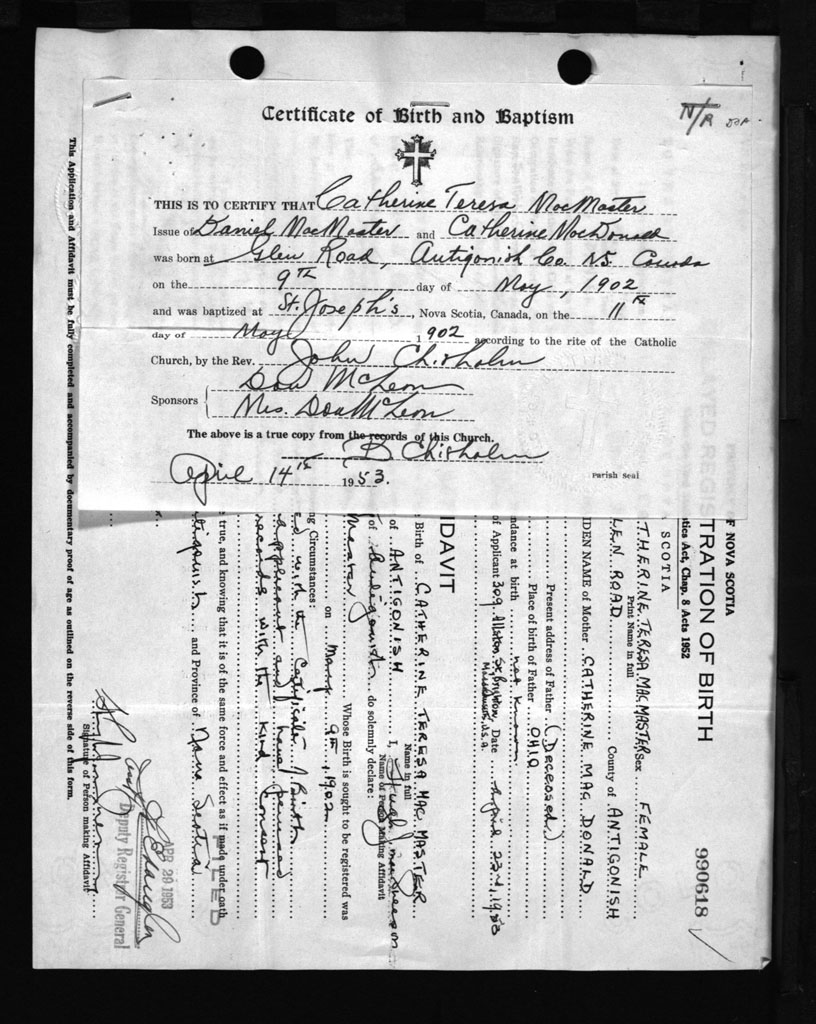 Certificate of Birth and Baptism
N/R
THIS IS TO CERTIFY THAT Catherine Teresa MacMaster
Issue of Daniel MacMaster and Catherine MacDonald
was born at Glen Road, Antigonish Co. N.S. Canada
on the 9TH day of May, 1902
and was baptized at St. Joseph's, Nova Scotia, Canada, on the 11th
day of May 1902 according to the rite of the Catholic
Church, by the Rev. John Chisholm
Sponsors
Dan McLeon
Mrs. Dan McLeon
The above is a true copy from the records of this Church.
Chisholm
April 14th 1953.
parish seal
F NOVA SCOTIA
TRATION OF BIRTH
990618
tics Act, Chap. 8 Acts 1952
SCOTIA
THERINE TERESA MAC MASTER Sex FEMALE
Print Name in full
LEN ROAD County of ANTIGONISH
IDEN NAME of Mother CATHERINE MAC DONALD
Present address of Father (Deceased)
Place of birth of Father OHIO
ndance at birth not known
of Applicant 309 Allston St, Brighton, Date April 23rd, 1953
Massachusetts, U.S.A.
IDAVIT
Birth of CATHERINE TERESA MAC MASTER
Name in full
of ANTIGONISH I, Hugh
Name of Person Making Affidavit
of Antigonish do solemnly declare:
Whose Birth is sought to be registered was
on May 9th, 1902
ng Circumstances:
d with the Certificate of Birth
applicant and have
records with the kind consent
true, and knowing that it is of the same force and effect as if made under oath
tigonish and Province of Nova Scotia
FILED
APR 29 1953
Deputy Registrar General
Signature of Person making Affidavit
This Application and Affidavit must be fully completed and accompanied by documentary proof of age as outlined on the reverse side of this form.